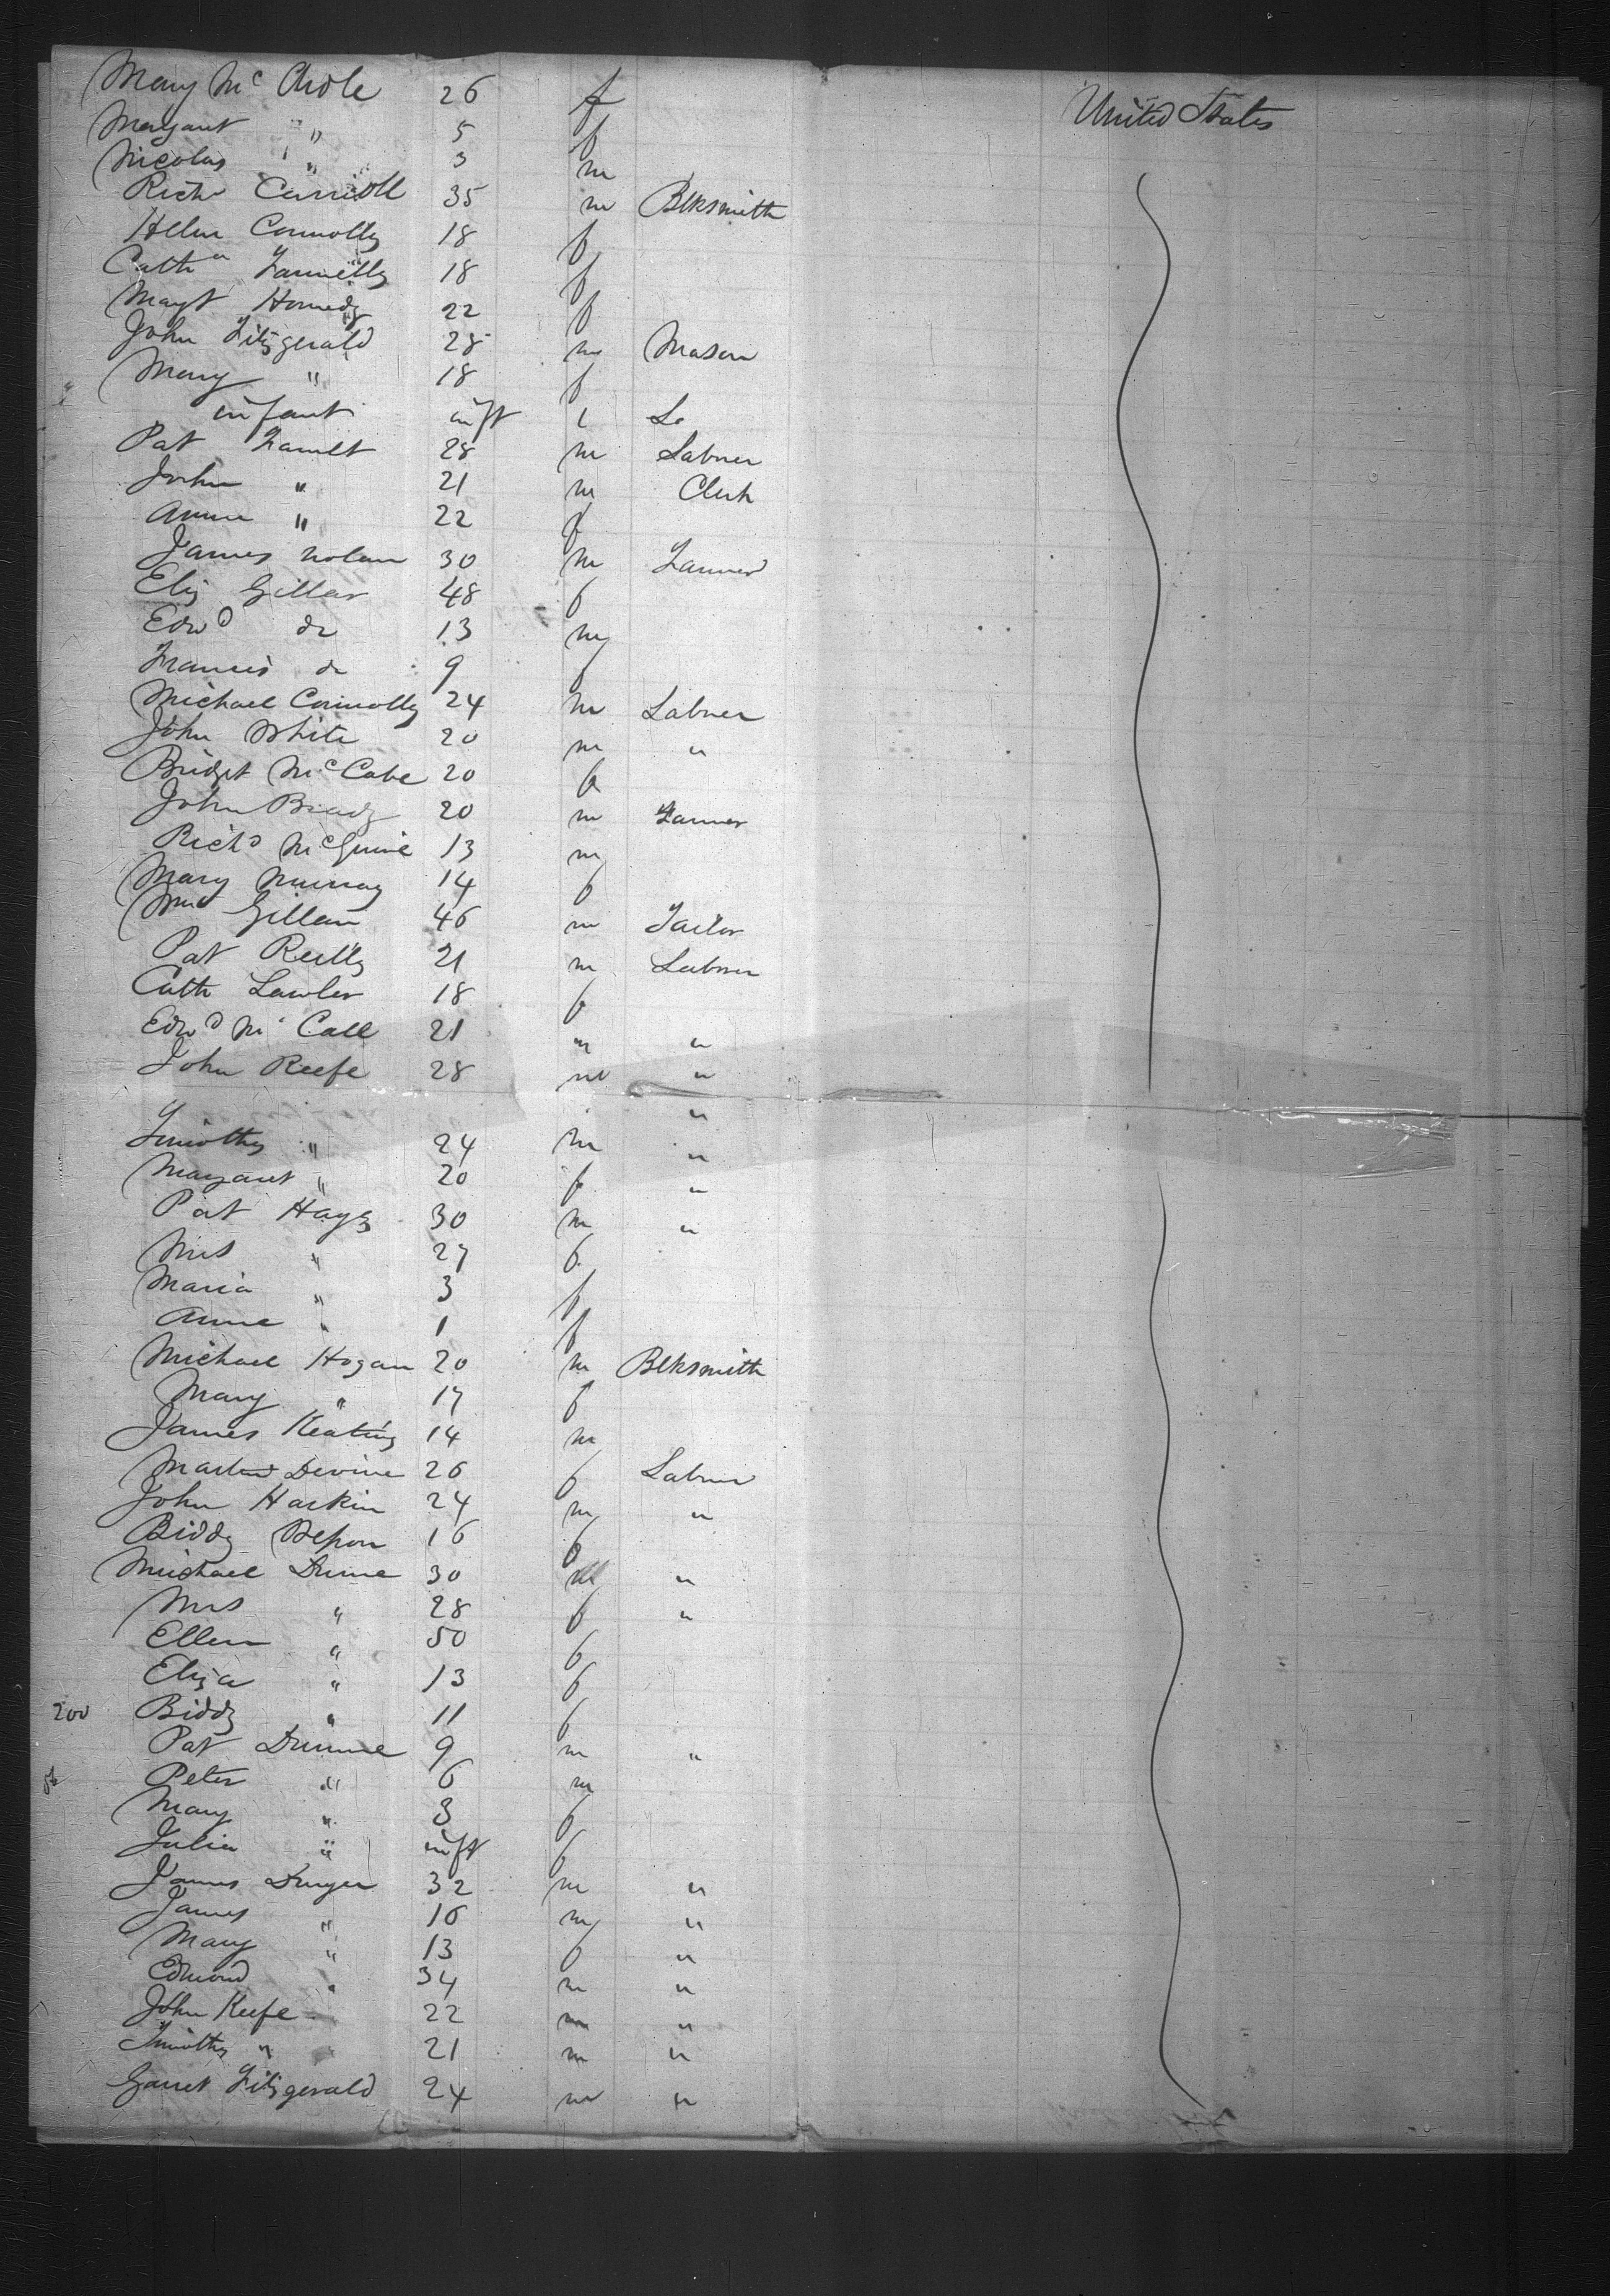 Mary McArdle 26 f United States
Margaret " 5 f
Nicolas " 3 m
Richd Carroll 35 m Blksmith
Helen Connolly 18 f
Catha Fannelly 18 f
Magt 22 f
John Fitzgerald 28 m Mason
Mary " 18 f
infant inft
Pat 28 m Labrer
John " 21 m Clerk
Anne " 22 f
James Nolan 30 m Farmer
Eliz Gillar 48 f
Edwd do 13 m
Francis do 9 f
Michael Connolly 24 m Labrer
John White 20 m "
Bridget McCabe 20 f
John Brady 20 m Farmer
Richd McGuire 13 m
Mary Murray 14 f
Gillan 46 m Tailor
Pat Reilly 21 m Labrer
Cath Lawler 18 f
Edwd McCall 21 m "
John Keefe 28 m "
"
Timothy " 24 m "
Margaret " 20 f "
Pat Hays 30 m "
Mrs " 27 f
Maria " 3 f
Anne " 1 f
Michael Hogan 20 m Blksmith
Mary " 17 f
James Keating 14 m
Martin Devine 26 f Labrer
John Harkin 24 m "
Biddy 16 f
Michael Dunne 30 m "
Mrs " 28 f "
Ellen " 50 f
Eliza " 13 f
200 Biddy " 11 f
Pat Dunne 9 m "
Peter " 6 m
Mary " 3 f
Julia " inft f
James Dwyer 32 m "
James " 16 m "
Mary " 13 f "
Edmond " 34 m "
John Keefe 22 m "
Timothy " 21 m "
Garret Fitzgerald 24 m "